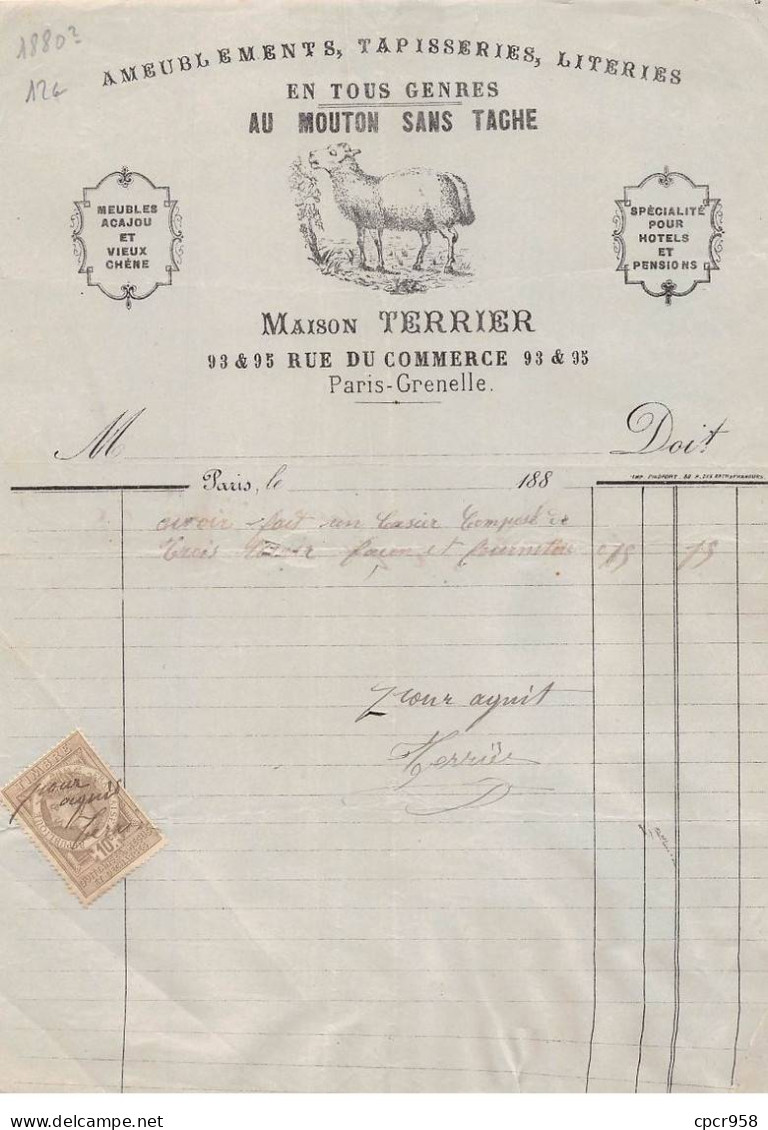 1880?
12€
AMEUBLEMENTS, TAPISSERIES, LITERIES
EN TOUS GENRES
AU MOUTON SANS TACHE
MEUBLES
ACAJOU
ET
VIEUX
CHÊNE
SPÉCIALITÉ
POUR
HOTELS
ET
PENSIONS
MAISON TERRIER
93 & 95 RUE DU COMMERCE 93 & 95
Paris-Grenelle.
M Doit
Paris, le 188
avoir fait un Casier Composé de
trois façon et fourniture 75 75
pour aquit
Terrier
TIMBRE
pour
aquit
10
Delcampe.net
cpcr958